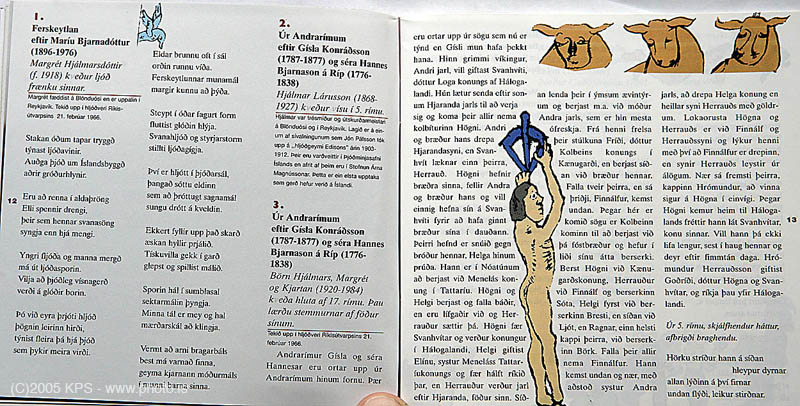 1.
Ferskeytlan
eftir Maríu Bjarnadóttur
(1896-1976)
Margrét Hjálmarsdóttir
(f. 1918) kveður ljóð
frænku sinnar.
Margrét fæddist á Blönduósi en er uppalin í
Reykjavík. Tekið upp í Hljóðveri Ríkisútvarpsins
21. febrúar 1966.
Stakan óðum tapar tryggð
týnast ljóðavinir.
Auðga þjóð um Íslandsbyggð
aðrir gróðurhlynir.
Eru að renna í aldaþröng
Elli spennir drengi,
þeir sem hennar svanasöng
syngja enn hjá mengi.
Yngri fljóða og manna mergð
má út ljóðasporin.
Vilja að þjóðleg vísnagerð
verði á glóðir borin.
Þó við eyra þrjóti hljóð
þögnin leirinn hirði,
týnist fleira þá hjá þjóð
sem þykir meira virði.
12
Eldar brunnu oft í sál
orðin runnu víða.
Ferskeytlunnar munamál
margir kunnu að þýða.
Steypt í óðar fagurt form
fluttist glóðin hlýja.
Svanahljóð og styrjarstorm
stillti ljóðagígja.
Því er hljótt í þjóðarsál,
þangað sóttu eldinn
sem að þróttugt sagnamál
sungu drótt á kveldin.
Ekkert fyllir upp það skarð
æskan hyllir prjálið.
Tískuvilla gekk í garð
glepst og spillist málið.
Sporin hál í sumblasal
sektarmálin þyngja.
Minna tál er mey og hal
mærðarskál að klingja.
Vermt að arni bragarbáls
best má varnað finna,
geyma kjarnann móðurmáls
munni barna sinna.
2.
Úr Andrarímum
eftir Gísla Konráðsson
(1787-1877) og séra Hannes
Bjarnason á Ríp (1776-
1838)
Hjálmar Lárusson (1868-
1927) kveður vísu í 5. rímu.
Hjálmar var trésmiður og útskurðarmeistari
á Blönduósi og í Reykjavík. Lagið er á ein-
um af sívalningunum sem Jón Pálsson tók
upp á „Hljóðgeymi Edisons“ árin 1903-
1912. Þeir eru varðveittir í Þjóðminjasafni
Íslands en afrit af þeim eru í Stofnun Árna
Magnússonar. Þetta er ein elsta upptaka
sem gerð hefur verið á Íslandi.
3.
Úr Andrarímum
eftir Gísla Konráðsson
(1787-1877) og séra Hannes
Bjarnason á Ríp (1776-
1838)
Börn Hjálmars, Margrét
og Kjartan (1920-1984)
kveða hluta af 17. rímu. Þau
lærðu stemmurnar af föður
sínum.
Tekið upp í hljóðveri Ríkisútvarpsins 21.
febrúar 1966.
Andrarímur Gísla og séra
Hannesar eru ortar upp úr
Andrarímum hinum fornu. Þær
eru ortar upp úr sögu sem nú er
týnd en Gísli mun hafa þekkt
hana. Hinn grimmi víkingur,
Andri jarl, vill giftast Svanhvíti,
dóttur Loga konungs af Háloga-
landi. Hún lætur senda eftir son-
um Hjaranda jarls til að verja
sig og koma þeir allir nema
kolbíturinn Högni. Andri
og bræður hans drepa
Hjarandasyni, en Svan-
hvít læknar einn þeirra,
Herrauð. Högni hefnir
bræðra sinna, fellir Andra
og bræður hans og vill
einnig hefna sín á Svan-
hvíti fyrir að hafa ginnt
bræður sína í dauðann.
Þeirri hefnd er snúið gegn
bróður hennar, Helga hinum
prúða. Hann er í Nóatúnum
að berjast við Menelás kon-
ung í Tattaríu. Högni og
Helgi berjast og falla báðir,
en eru lífgaðir við og Her-
rauður sættir þá. Högni fær
Svanhvítar og verður konungur
í Hálogalandi, Helgi giftist
Elínu, systur Meneláss Tattar-
íukonungs og fær hálft ríkið
þar, en Herrauður verður jarl
eftir Hjaranda, föður sinn. Síð-
an lenda þeir í ýmsum ævintýr-
um og berjast m.a. við móður
Andra jarls, sem er hin mesta
ófreskja. Frá henni frelsa
þeir stúlkuna Fríði, dóttur
Kolbeins konungs í
Kænugarði, en berjast síð-
an við bræður hennar.
Falla tveir þeirra, en sá
þriðji, Finnálfur, kemst
undan. Þegar hér er
komið sögu er Kolbeinn
kominn til að berjast við
þá fóstbræður og hefur í
liði sínu átta berserki.
Berst Högni við Kænu-
garðskonung, Herrauður
við Finnálf og berserkinn
Sóta, Helgi fyrst við ber-
serkinn Bresti, en síðan við
Ljót, en Ragnar, einn helsti
kappi þeirra, við berserk-
inn Börk. Falla þeir allir
nema Finnálfur. Hann
kemst undan og nær, með
aðstoð systur Andra
jarls, að drepa Helga konung en
heillar syni Herrauðs með göldr-
um. Lokaorusta Högna og
Herrauðs er við Finnálf og
Herrauðssyni og lýkur henni
með því að Finnálfur er drepinn,
en synir Herrauðs leystir úr
álögum. Nær sá fremsti þeirra,
kappinn Hrómundur, að vinna
sigur á Högna í einvígi. Þegar
Högni kemur heim til Háloga-
lands fréttir hann lát Svanhvítar,
konu sinnar. Vill hann þá ekki
lifa lengur, sest í haug hennar og
deyr eftir fimmtán daga. Hró-
mundur Herrauðsson giftist
Goðríði, dóttur Högna og Svan-
hvítar, og ríkja þau yfir Háloga-
landi.
Úr 5. rímu, skjálfhendur háttur,
afbrigði braghendu.
Hörku stríður hann á síðan
hleypur dyrnar
allan lýðinn á því firnar
undan flýði, leikur stirðnar.
13
(C)2005 KPS - www.photo.is